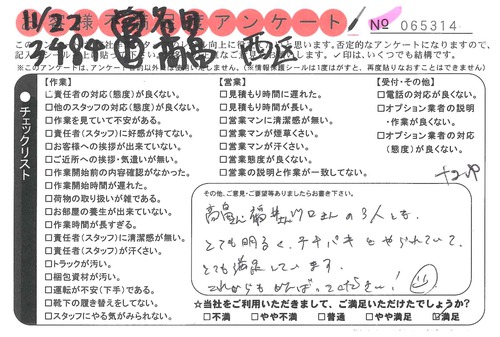 お客様不満足度アンケート
№ 065314
11/22
3484
西区
※このアンケートは、アンケート
(※情報保護シールは1度はがすと、再度貼りなおすことはできません)
チェックリスト
【作業】
□責任者の対応(態度)が良くない。
□他のスタッフの対応(態度)が良くない。
□作業を見ていて不安がある。
□責任者(スタッフ)に好感が持てない。
□お客様への挨拶が出来ていない。
□ご近所への挨拶・気遣いが無い。
□作業開始前の内容確認がなかった。
□作業開始時間が遅れた。
□荷物の取り扱いが雑である。
□お部屋の養生が出来ていない。
□作業時間が長すぎる。
□責任者(スタッフ)に清潔感が無い。
□責任者(スタッフ)が汗くさい。
□トラックが汚い。
□梱包資材が汚い。
□運転が不安(下手)である。
□靴下の履き替えをしてない。
□スタッフにやる気がみられない。
【営業】
□見積もり時間に遅れた。
□見積もり時間が長い。
□営業マンに清潔感が無い。
□営業マンが煙草くさい。
□営業マンが汗くさい。
□営業態度が良くない。
□営業の説明と作業が一致してない。
【受付・その他】
□電話の対応が良くない。
□オプション業者の説明
・作業が良くない。
□オプション業者の対応
(態度)が良くない。
その他、ご意見・ご要望等ありましたらお書き下さい。
さんの3人とも、
とても明るく、テキパキとやられていて、
とても満足しています。
これからもがんばってください!
☆当社をご利用いただきまして、ご満足いただけたでしょうか?
□不満 □やや不満 □普通 □やや満足 ☑満足